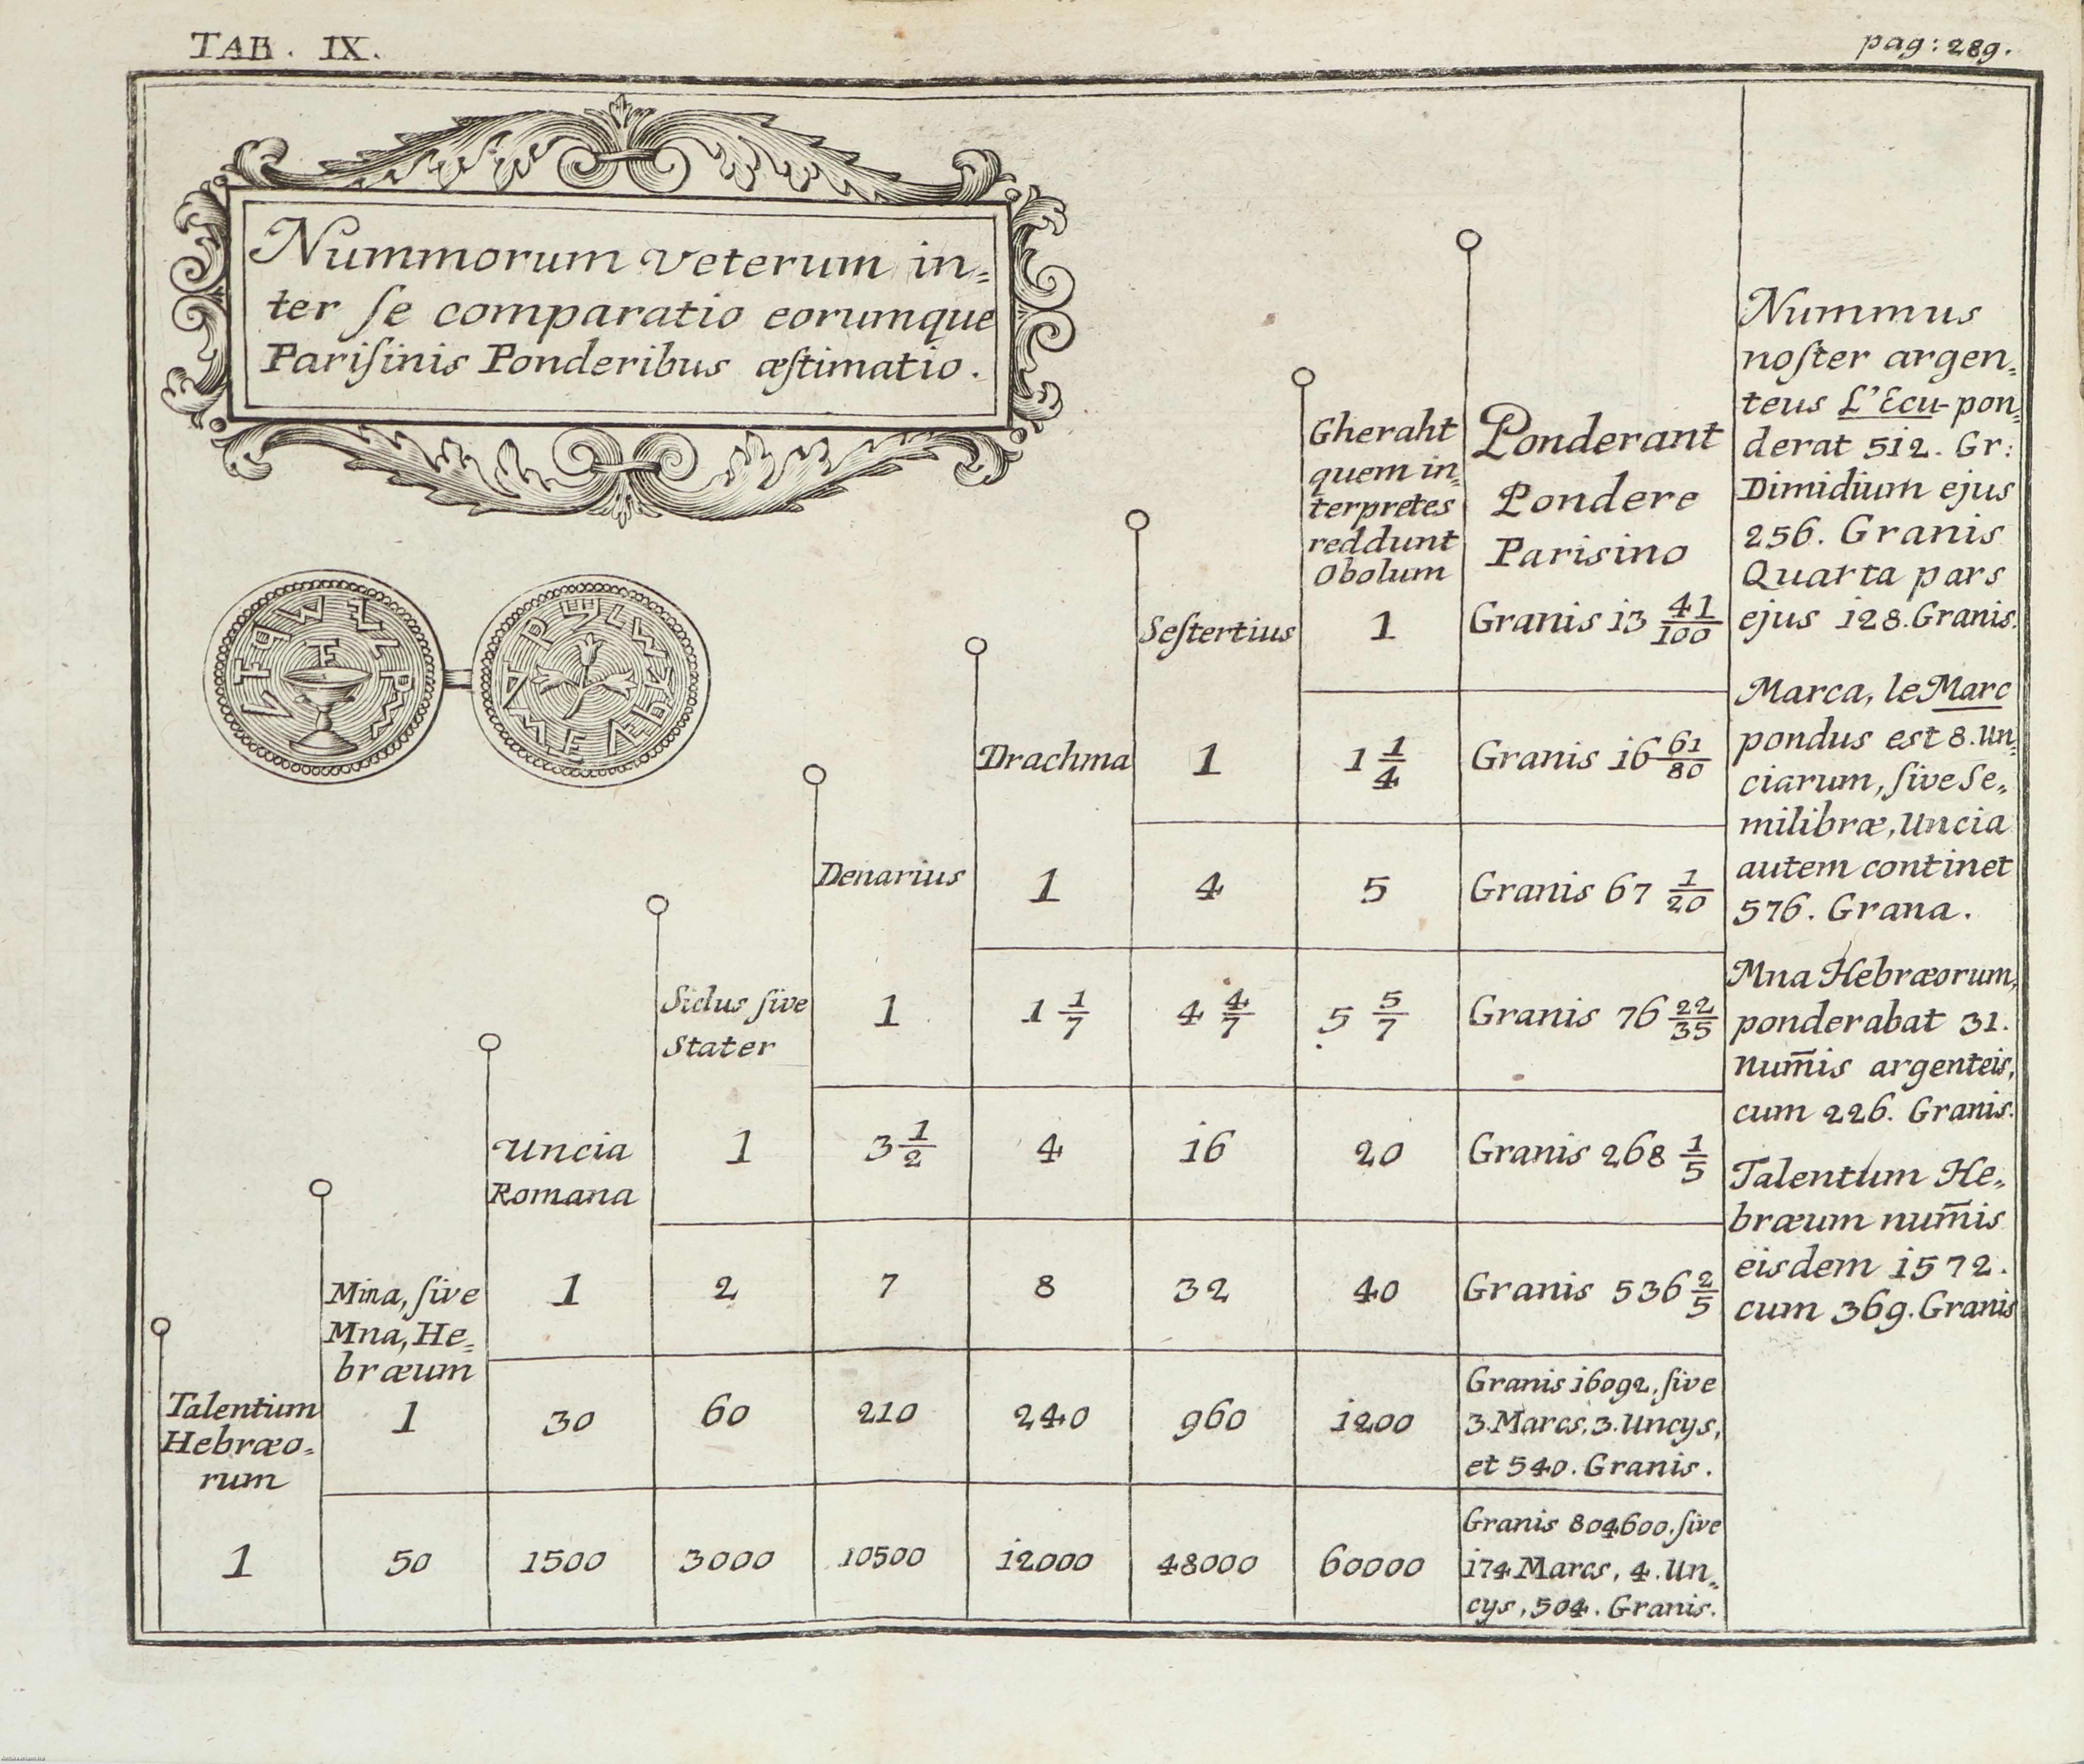 TAB. IX.
pag: 289.
Nummorum veterum in=
ter ſe comparatio eorumque
Pariſinis Ponderibus æſtimatio.
Gheraht
quem in=
terpretes
reddunt
Obolum
Ponderant
Pondere
Parisino
Seſtertius
1
Granis 13 41/100
Drachma
1
1 1/4
Granis 16 61/80
Denarius
1
4
5
Granis 67 1/20
Siclus ſive
Stater
1
1 1/7
4 4/7
5 5/7
Granis 76 22/35
Uncia
Romana
1
3 1/2
4
16
20
Granis 268 1/5
Mina, ſive
Mna, He=
bræum
1
2
7
8
32
40
Granis 536 2/5
Talentum
Hebræo=
rum
1
30
60
210
240
960
1200
Granis 16092, ſive
3. Marcs, 3. Uncys,
et 540. Granis.
1
50
1500
3000
10500
12000
48000
60000
Granis 804600. ſive
174 Marcs, 4. Un=
cys, 504. Granis.
Nummus
noſter argen=
teus L'Ecu-pon=
derat 512. Gr:
Dimidium ejus
256. Granis
Quarta pars
ejus 128. Granis.
Marca, le Marc
pondus est 8. Un=
ciarum, ſive Se=
milibræ, Uncia
autem continet
576. Grana.
Mna Hebræorum,
ponderabat 31.
num̄is argenteis,
cum 226. Granis.
Talentum He=
bræum num̄is
eisdem 1572.
cum 369. Granis